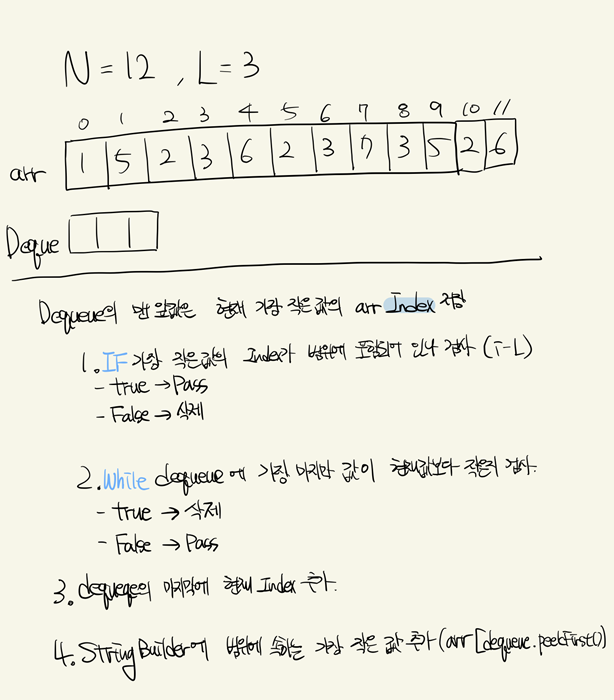 N=12 , L=3
0 1 2 3 4 5 6 7 8 9 10 11
arr 1 5 2 3 6 2 3 7 3 5 2 6
Deque
Dequeue의 맨 앞값은 현재 가장 작은 값의 arr Index 저장
1. IF 가장 작은 값의 Index가 범위에 포함되어 있나 검사 (i-L)
- true → Pass
- False → 삭제
2. While dequeue에 가장 마지막 값이 현재값보다 작은지 검사.
- true → 삭제
- False → Pass
3. dequeqe의 마지막에 현재 Index 추가.
4. StringBuilder에 범위에 속하는 가장 작은 값 추가 (arr[dequeue.peekFirst()